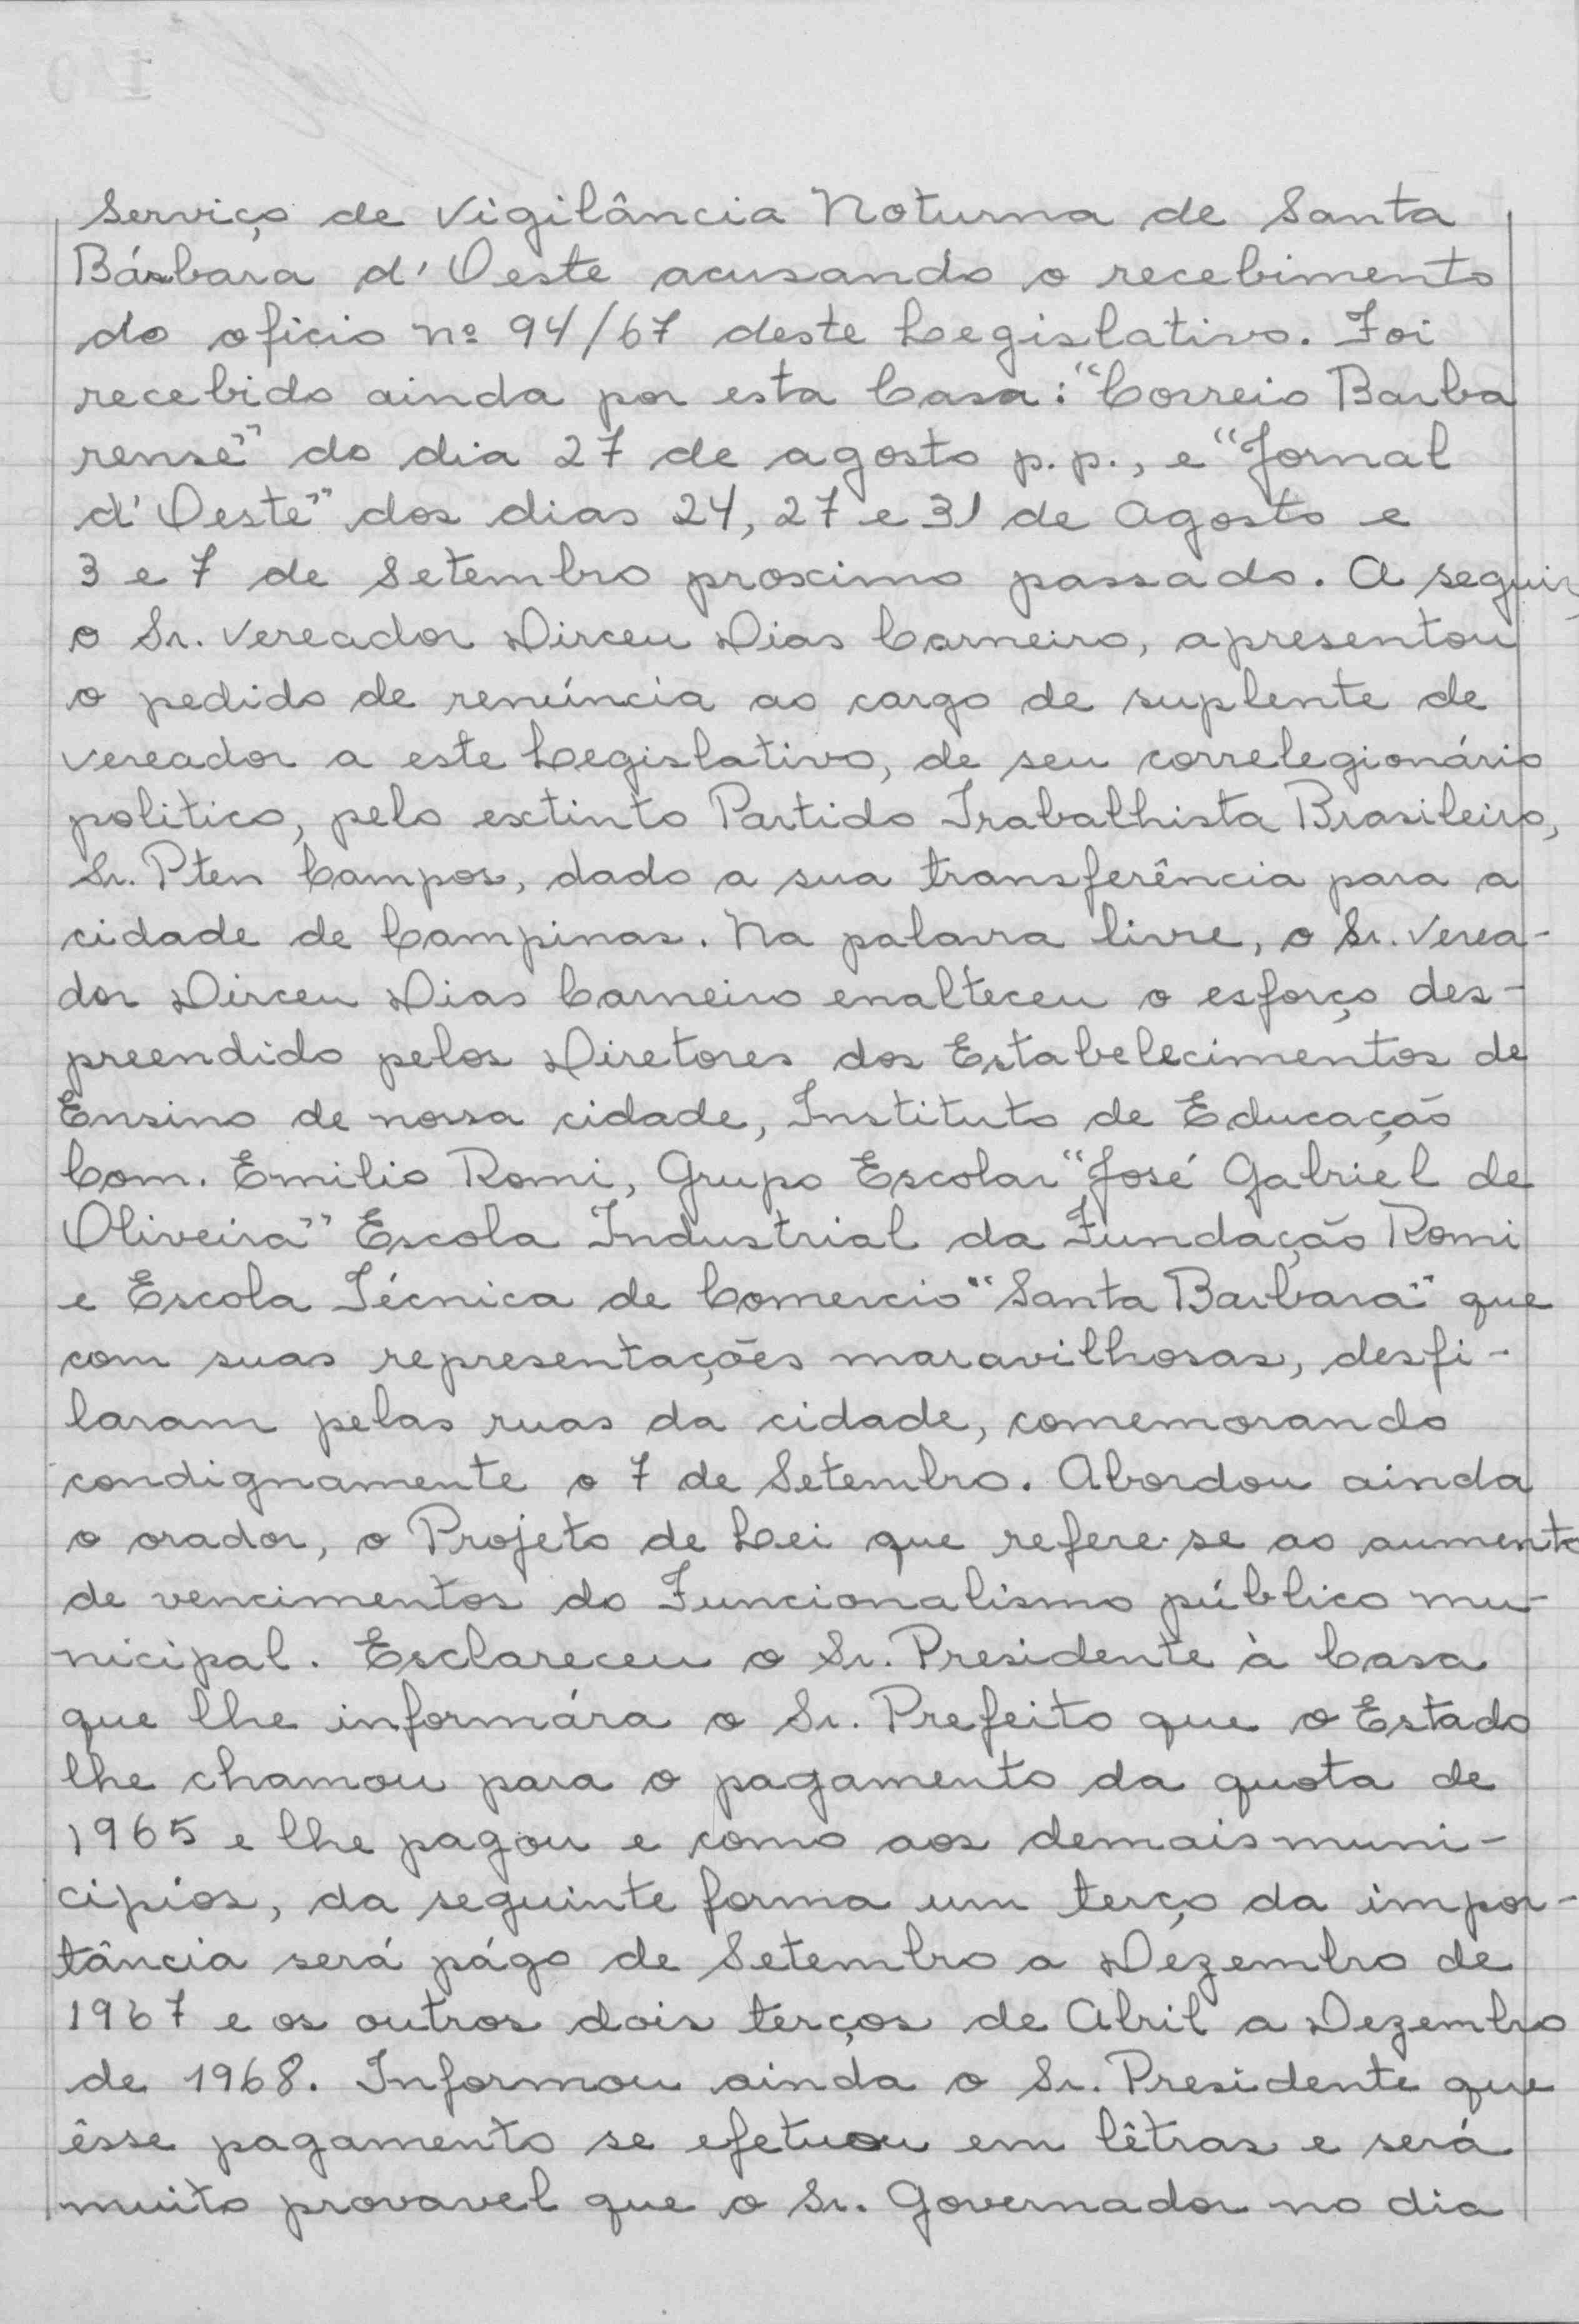 Serviço de Vigilância Noturna de Santa
Bárbara d'Oeste acusando o recebimento
do oficio nº 94/67 deste Legislativo. Foi
recebido ainda por esta Casa: "Correio Barba
rense" do dia 27 de agosto p.p., e "Jornal
d'Oeste" dos dias 24, 27 e 31 de Agosto e
3 e 7 de Setembro proximo passado. A seguir,
o Sr. Vereador Dirceu Dias Carneiro, apresentou
o pedido de renúncia ao cargo de suplente de
vereador a este Legislativo, de seu correlegionário
politico, pelo extinto Partido Trabalhista Brasileiro,
Sr. Pten Campos, dado a sua transferência para a
cidade de Campinas. Na palavra livre, o Sr. Verea-
dor Dirceu Dias Carneiro enalteceu o esforço des-
preendido pelos Diretores dos Estabelecimentos de
Ensino de nossa cidade, Instituto de Educação
Com. Emilio Romi, Grupo Escolar "José Gabriel de
Oliveira" Escola Industrial da Fundação Romi
e Escola Técnica de Comercio "Santa Barbara" que
com suas representações maravilhosas, desfi-
laram pelas ruas da cidade, comemorando
condignamente o 7 de Setembro. Abordou ainda
o orador, o Projeto de Lei que refere-se ao aumento
de vencimentos do Funcionalismo público mu-
nicipal. Esclareceu o Sr. Presidente à Casa
que lhe informára o Sr. Prefeito que o Estado
lhe chamou para o pagamento da quota de
1965 e lhe pagou e como aos demais muni-
cipios, da seguinte forma um terço da impor-
tância será págo de Setembro a Dezembro de
1967 e os outros dois terços de Abril a Dezembro
de 1968. Informou ainda o Sr. Presidente que
êsse pagamento se efetuou em lêtras e será
muito provavel que o Sr. Governador no dia